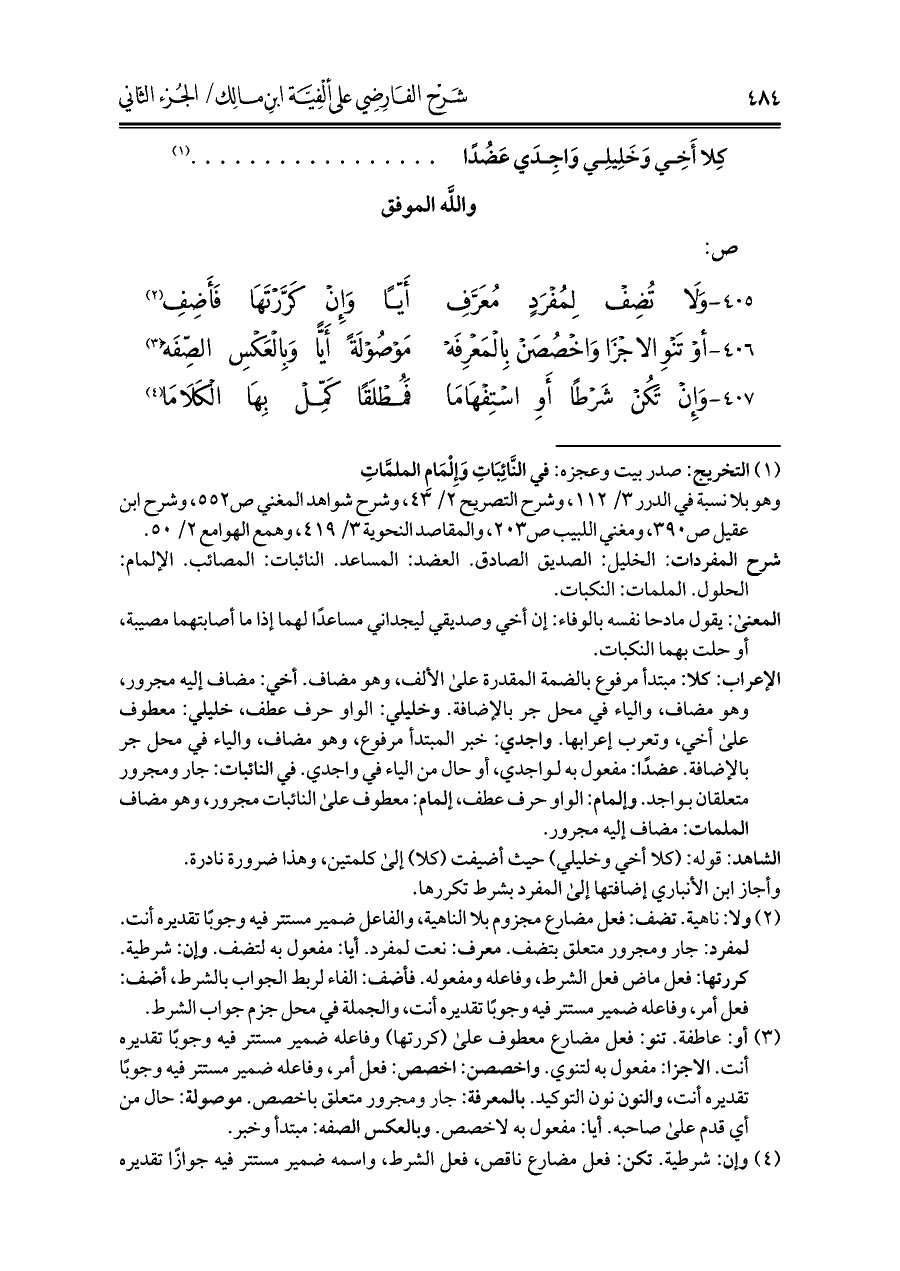 ٤٨٤ شَرْح الفَارِضِي عَلى أَلْفِيَّة ابنِ مَالِك/ الجُزء الثاني
كِلا أَخِـي وَخَلِيلِـي وَاجِـدَي عَضُدًا . . . . . . . . . . . . . . . . . (١)
واللَّه الموفق
ص:
٤٠٥-وَلَا تُضِفْ لِمُفْرَدٍ مُعَرَّفِ أَيًّـا وَإِنْ كَرَّرْتَهَا فَأَضِفِ(٢)
٤٠٦-أوْ تَنْوِ الاجْزَا وَاخْصُصَنْ بِالْمَعْرِفَهْ مَوْصُولَةً أَيًّا وَبِالْعَكْسِ الصِّفَهْ(٣)
٤٠٧-وَإِنْ تَكُنْ شَرْطًا أَوِ اسْتِفْهَامَا فَمُـطْلَقًا كَمِّـلْ بِهَا الْكَلَامَا(٤)
(١) التخريج: صدر بيت وعجزه: في النَّائِبَاتِ وَإِلْمَامِ الملمَّاتِ
وهو بلا نسبة في الدرر ٣/ ١١٢، وشرح التصريح ٢/ ٤٣، وشرح شواهد المغني ص٥٥٢، وشرح ابن
عقيل ص٣٩٠، ومغني اللبيب ص٢٠٣، والمقاصد النحوية ٣/ ٤١٩، وهمع الهوامع ٢/ ٥٠.
شرح المفردات: الخليل: الصديق الصادق. العضد: المساعد. النائبات: المصائب. الإلمام:
الحلول. الملمات: النكبات.
المعنىٰ: يقول مادحا نفسه بالوفاء: إن أخي وصديقي ليجداني مساعدًا لهما إذا ما أصابتهما مصيبة،
أو حلت بهما النكبات.
الإعراب: كلا: مبتدأ مرفوع بالضمة المقدرة علىٰ الألف، وهو مضاف. أخي: مضاف إليه مجرور،
وهو مضاف، والياء في محل جر بالإضافة. وخليلي: الواو حرف عطف، خليلي: معطوف
علىٰ أخي، وتعرب إعرابها. واجدي: خبر المبتدأ مرفوع، وهو مضاف، والياء في محل جر
بالإضافة. عضدًا: مفعول به لـواجدي، أو حال من الياء في واجدي. في النائبات: جار ومجرور
متعلقان بـواجد. وإلمام: الواو حرف عطف، إلمام: معطوف علىٰ النائبات مجرور، وهو مضاف
الملمات: مضاف إليه مجرور.
الشاهد: قوله: (كلا أخي وخليلي) حيث أضيفت (كلا) إلىٰ كلمتين، وهذا ضرورة نادرة.
وأجاز ابن الأنباري إضافتها إلىٰ المفرد بشرط تكررها.
(٢) ولا: ناهية. تضف: فعل مضارع مجزوم بلا الناهية، والفاعل ضمير مستتر فيه وجوبًا تقديره أنت.
لمفرد: جار ومجرور متعلق بتضف. معرف: نعت لمفرد. أيا: مفعول به لتضف. وإن: شرطية.
كررتها: فعل ماض فعل الشرط، وفاعله ومفعوله. فأضف: الفاء لربط الجواب بالشرط، أضف:
فعل أمر، وفاعله ضمير مستتر فيه وجوبًا تقديره أنت، والجملة في محل جزم جواب الشرط.
(٣) أو: عاطفة. تنو: فعل مضارع معطوف علىٰ (كررتها) وفاعله ضمير مستتر فيه وجوبًا تقديره
أنت. الاجزا: مفعول به لتنوي. واخصصن: اخصص: فعل أمر، وفاعله ضمير مستتر فيه وجوبًا
تقديره أنت، والنون نون التوكيد. بالمعرفة: جار ومجرور متعلق باخصص. موصولة: حال من
أي قدم علىٰ صاحبه. أيا: مفعول به لاخصص. وبالعكس الصفه: مبتدأ وخبر.
(٤) وإن: شرطية. تكن: فعل مضارع ناقص، فعل الشرط، واسمه ضمير مستتر فيه جوازًا تقديره